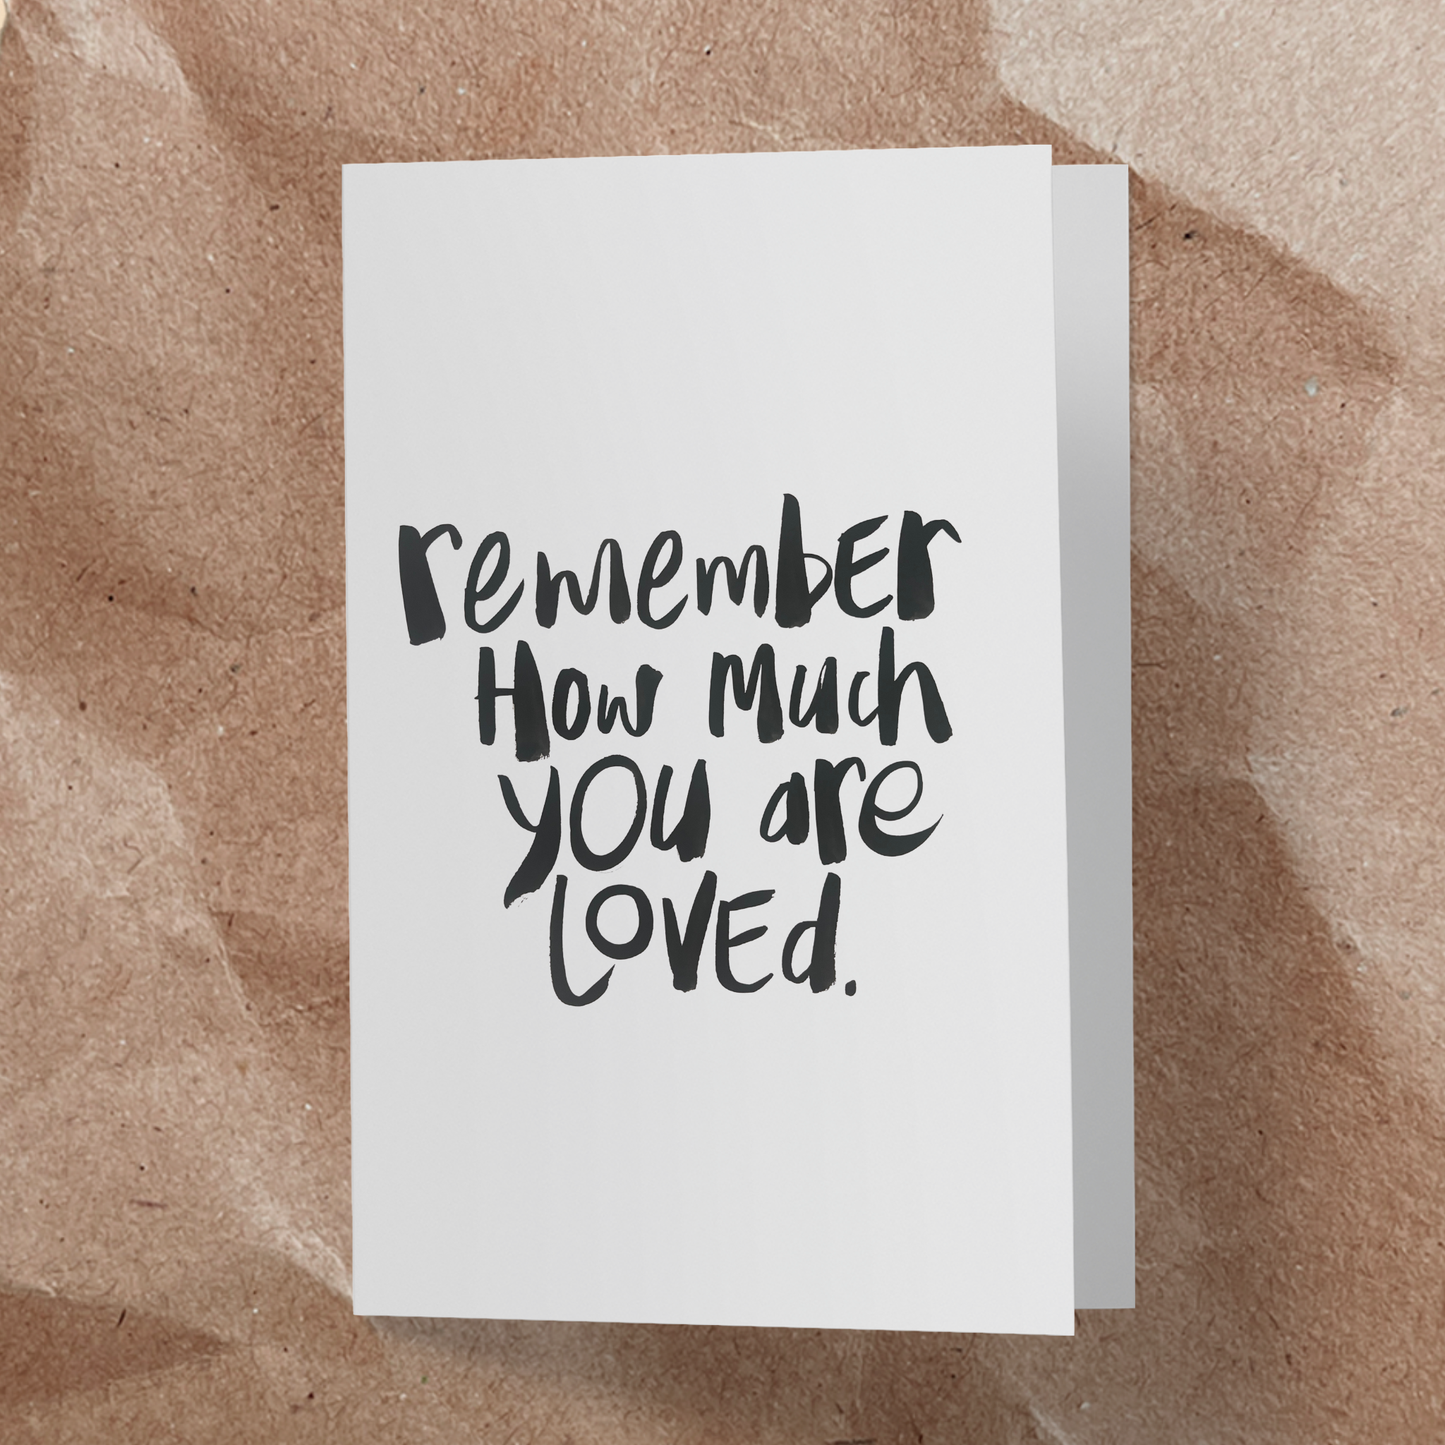 remember
How much
you are
loved.